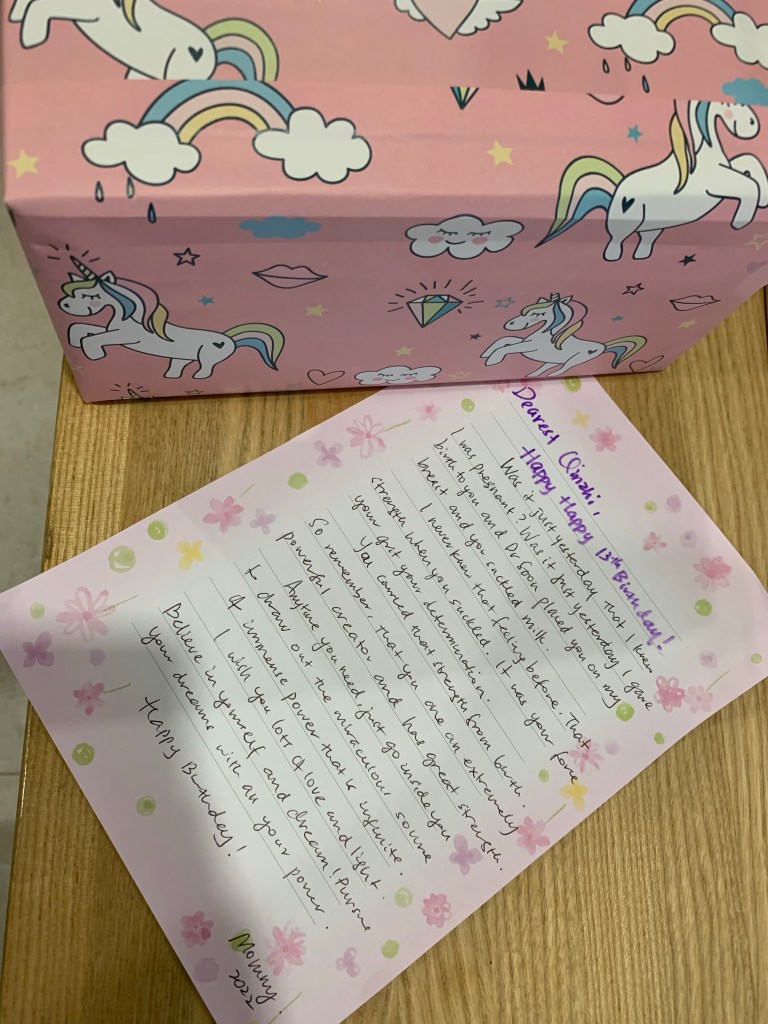 Dearest Qinzhi,
Happy Happy 13th Birthday!
Was it just yesterday that I knew
I was pregnant? Was it just yesterday I gave
birth to you and Dr Soon placed you on my
breast and you suckled milk.
I never knew that feeling before. That
strength when you suckled. It was your force
your grit your determination.
You carried that strength from birth.
So remember, that you are an extremely
powerful creator and has great strength.
Anytime you need, just go inside you
to draw out the miraculous source
of immense power that is infinite.
I wish you lots of love and light.
Believe in yourself and dream! Pursue
your dreams with all your power.
Happy Birthday!
Mommy
2022